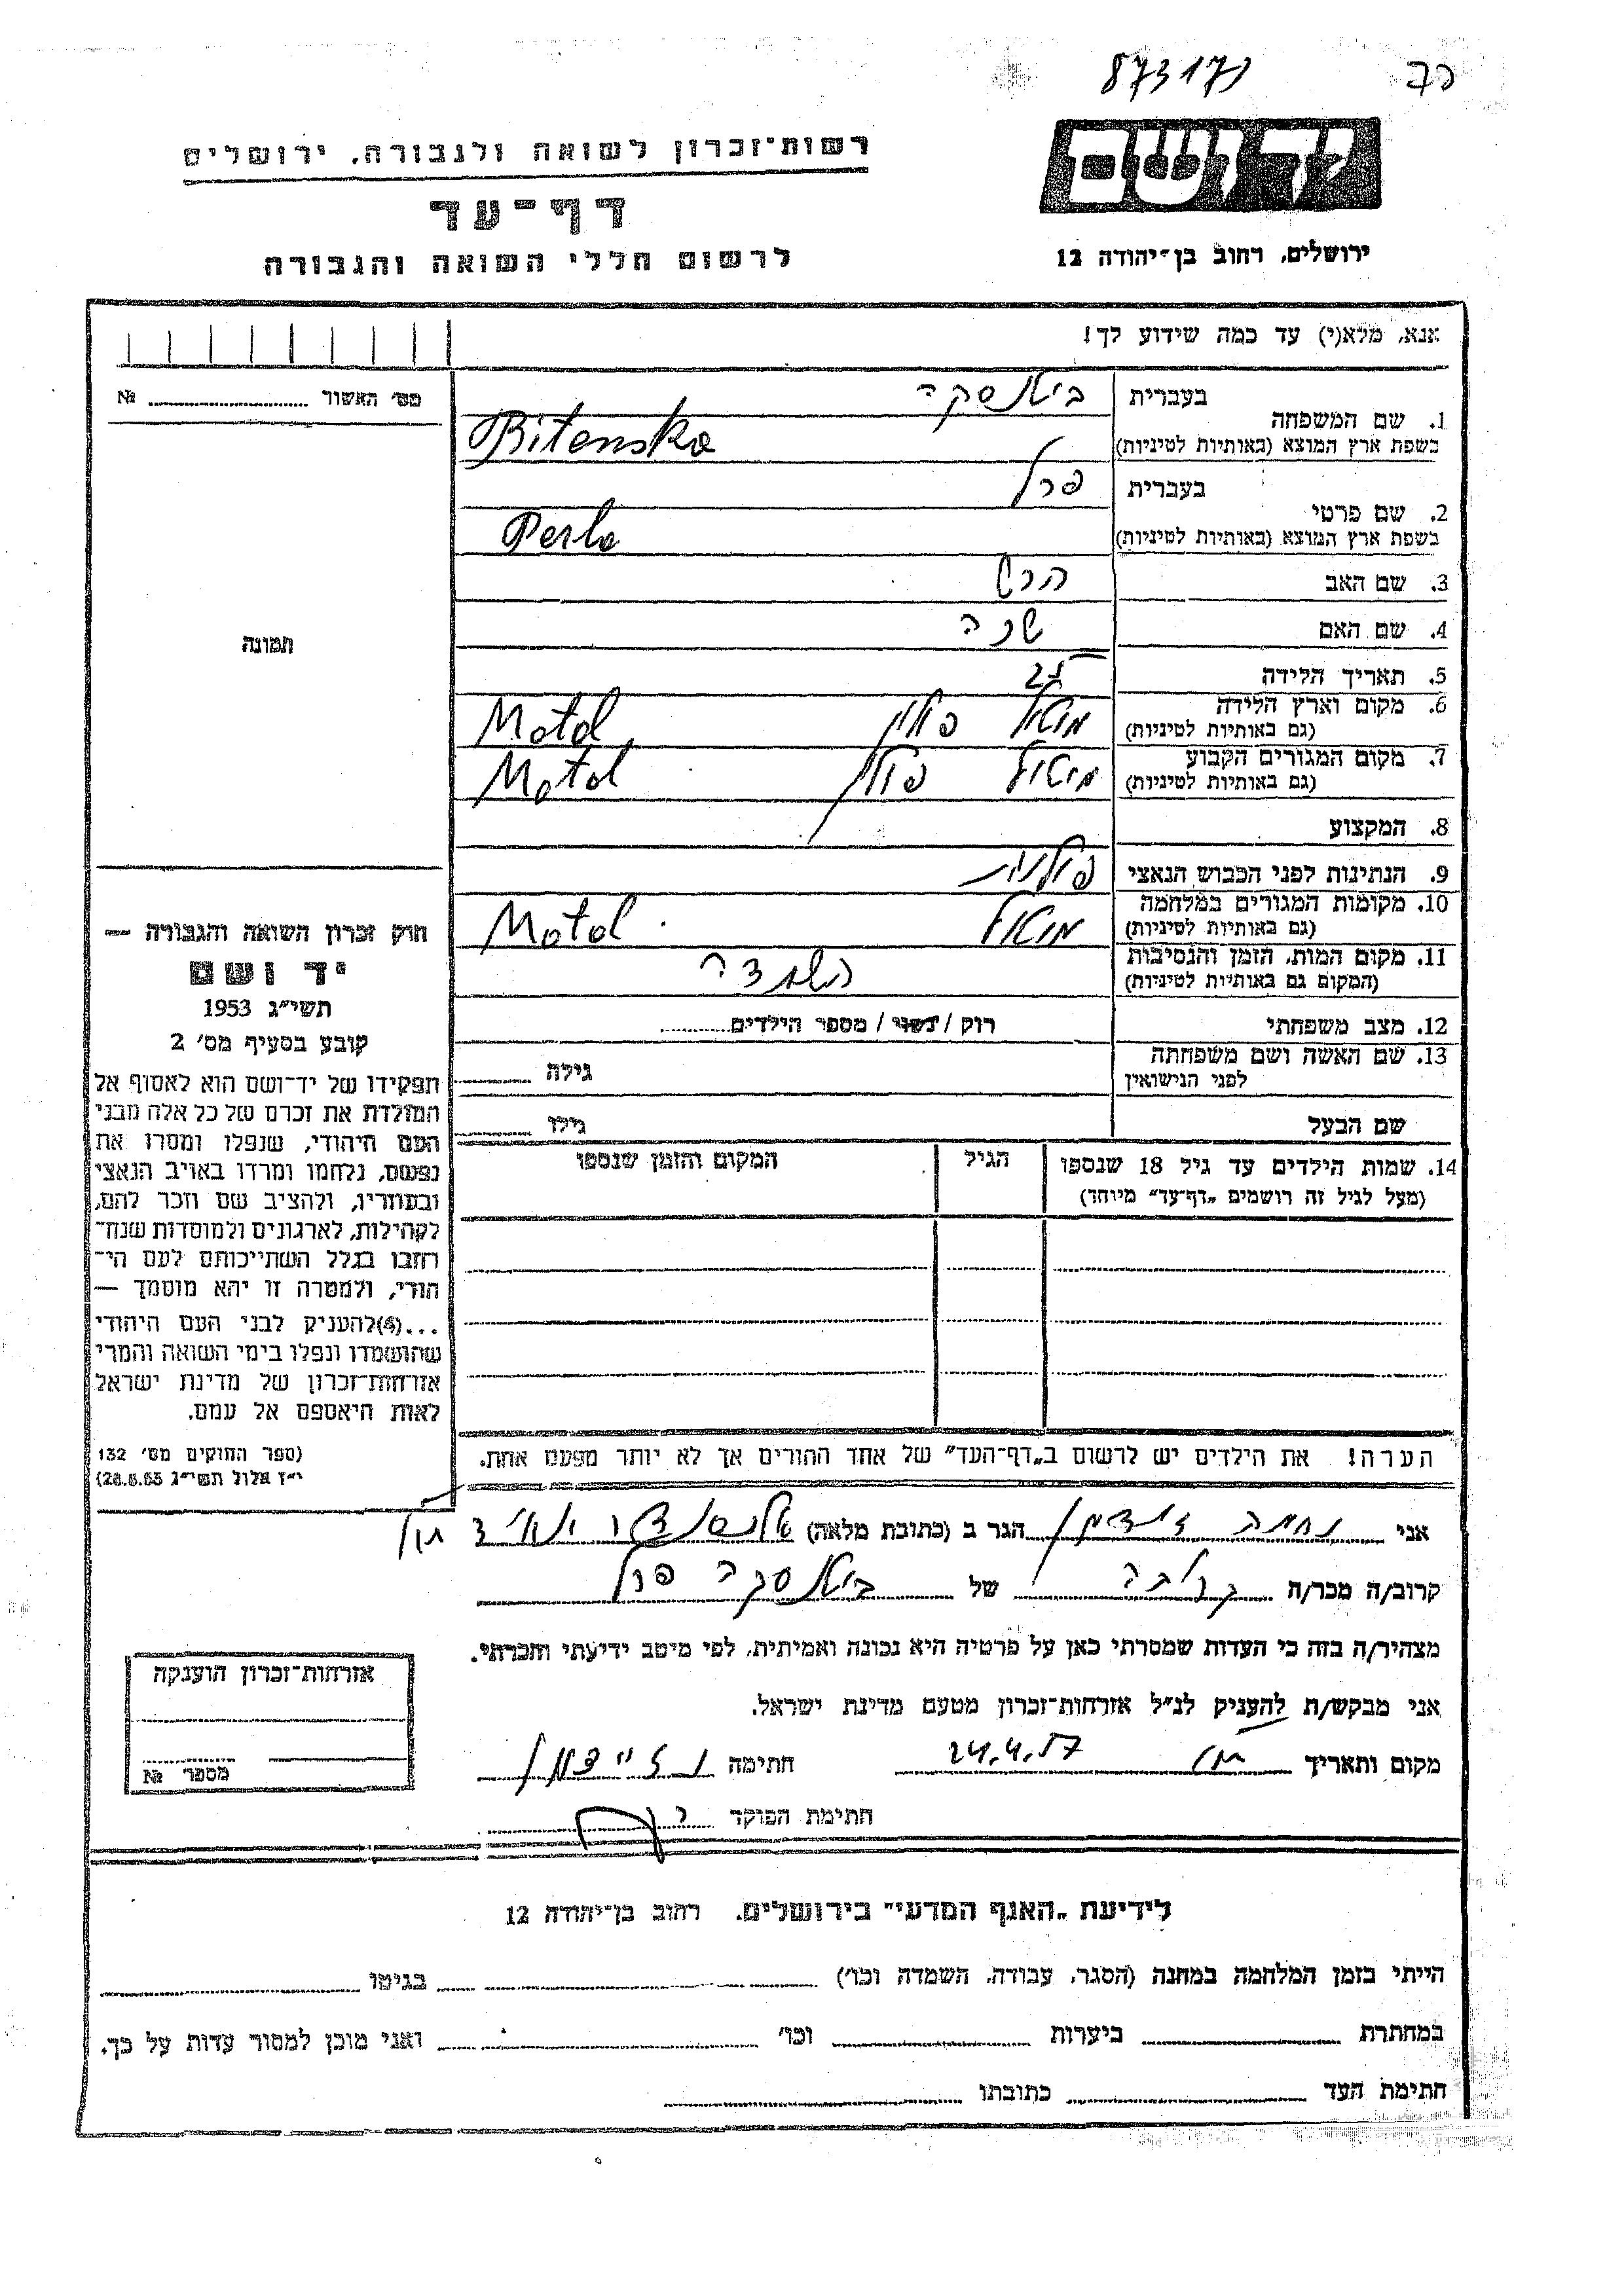 873171
יד ושם
רשות־זכרון לשואה ולגבורה, ירושלים
דף־עד
לרשום חללי השואה והגבורה
ירושלים, רחוב בן־יהודה 12
אנא, מלא(י) עד כמה שידוע לך!
מס׳ האשור № 
1. שם המשפחה
בעברית ביטנסקה
בשפת ארץ המוצא (באותיות לטיניות) Bitenska
2. שם פרטי
בעברית פרל
בשפת ארץ המוצא (באותיות לטיניות) Perla
3. שם האב הרש
4. שם האם
5. תאריך הלידה
6. מקום וארץ הלידה מוטול פולין Motol
(גם באותיות לטיניות)
7. מקום המגורים הקבוע מוטול פולין Motol
(גם באותיות לטיניות)
8. המקצוע
9. הנתינות לפני הכבוש הנאצי פולנית
10. מקומות המגורים במלחמה מוטול Motol
(גם באותיות לטיניות)
11. מקום המות, הזמן והנסיבות הושמדה
(המקום גם באותיות לטיניות)
12. מצב משפחתי רוק / נשוי / מספר הילדים
13. שם האשה ושם משפחתה גילה
לפני הנישואין
שם הבעל גילו
14. שמות הילדים עד גיל 18 שנספו הגיל המקום והזמן שנספו
(מעל לגיל זה רושמים „דף־עד״ מיוחד)
תמונה
חוק זכרון השואה והגבורה —
יד ושם
תשי״ג 1953
קובע בסעיף מס׳ 2
תפקידו של יד־ושם הוא לאסוף אל
המולדת את זכרם של כל אלה מבני
העם היהודי, שנפלו ומסרו את
נפשם, נלחמו ומרדו באויב הנאצי
ובעוזריו, ולהציב שם וזכר להם,
לקהילות, לארגונים ולמוסדות שנח־
רבו בגלל השתייכותם לעם הי־
הודי, ולמטרה זו יהא מוסמך —
...(4)להעניק לבני העם היהודי
שהושמדו ונפלו בימי השואה והמרי
אזרחות־זכרון של מדינת ישראל
לאות היאספם אל עמם.
(ספר החוקים מס׳ 132
י״ז אלול תשי״ג 28.8.53)
הערה! את הילדים יש לרשום ב„דף־העד״ של אחד ההורים אך לא יותר מפעם אחת.
אני נחמה הגר ב (כתובת מלאה)
קרוב/ה מכר/ה קרובה של ביטנסקה פרל
מצהיר/ה בזה כי העדות שמסרתי כאן על פרטיה היא נכונה ואמיתית, לפי מיטב ידיעתי והכרתי.
אני מבקש/ת להעניק לנ״ל אזרחות־זכרון מטעם מדינת ישראל.
מקום ותאריך 24.4.57 חתימה
חתימת הפוקד
אזרחות־זכרון הוענקה
מספר №
לידיעת „האגף המדעי״ בירושלים, רחוב בן־יהודה 12
הייתי בזמן המלחמה במחנה (הסגר, עבודה, השמדה וכו׳) בגיטו
במחתרת ביערות וכו׳ ואני מוכן למסור עדות על כך.
חתימת העד כתובתו